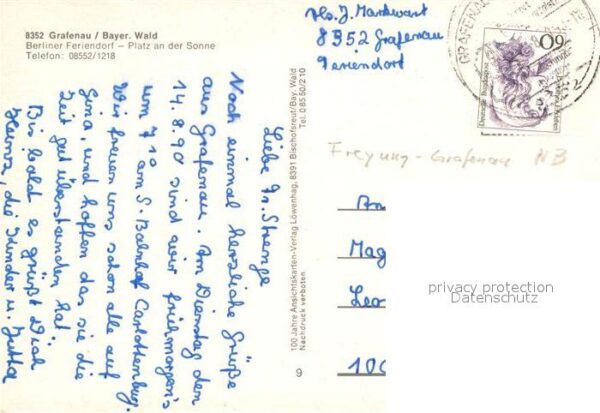 8352 Grafenau / Bayer. Wald
Berliner Feriendorf — Platz an der Sonne
Telefon: 08552/1218
Liebe Fr. Strenge
Noch einmal herzliche Grüße
aus Grafenau. Am Dienstag den
14.8.90 sind wir frühmorgen's
um 7 10 am S-Bahnhof Carlottenburg.
Wir freuen uns schon alle auf
Gina, und hoffen das sie die
Zeit gut überstanden hat.
Bis bald es grüßt Dich
Heinz, die Kinder u. Jutta
100 Jahre Ansichtskarten-Verlag Löwenhag, 8391 Bischofsreut/Bay. Wald
Nachdruck verboten Tel. 08550/210
9
Abs. J. Markwart
8352 Grafenau
Feriendorf
GRAFENAU
60
Deutsche Bundespost
Freyung-Grafenau NB
An
Mag
Leo
100
privacy protection
Datenschutz